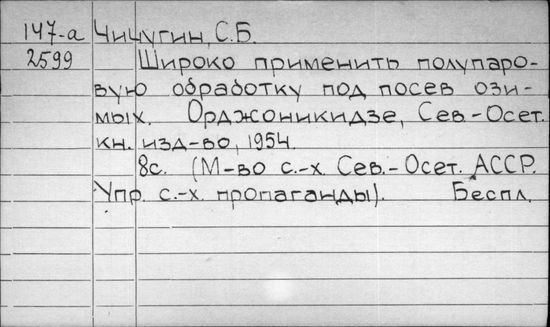 147-а Чичугин, С.Б.
2599 Широко применить полупаро-
вую обработку под посев ози-
мых. Орджоникидзе, Сев.-Осет.
кн. изд-во, 1954.
8с. (М-во с.-х. Сев.-Осет. АССР.
Упр. с.-х. пропаганды). Беспл.